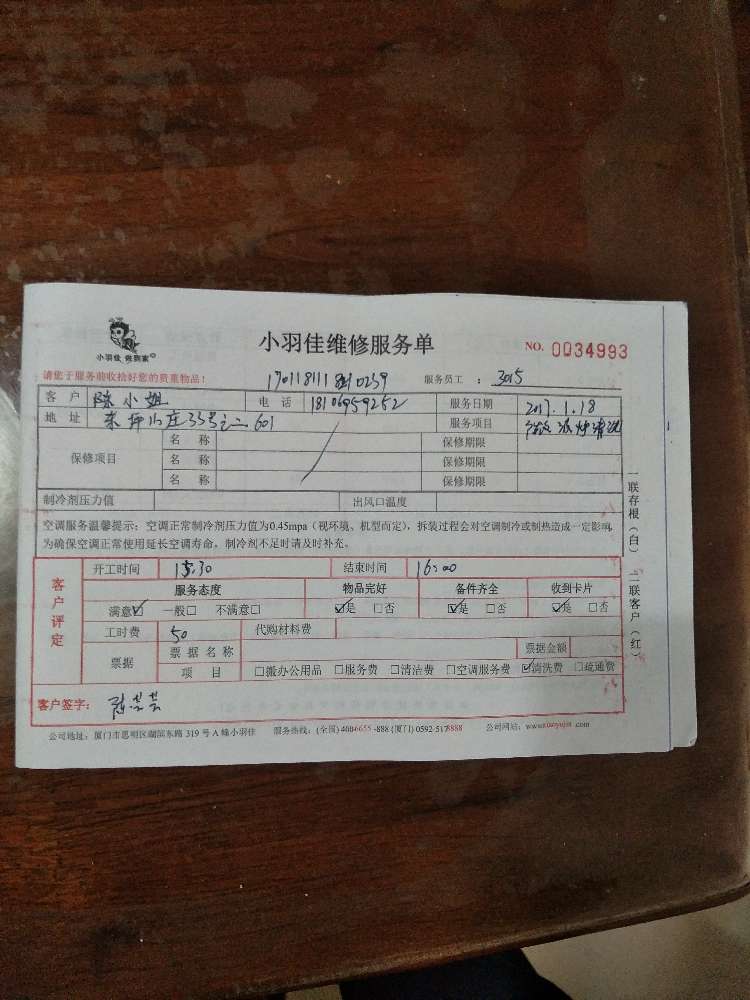 小羽佳 做到家®
小羽佳维修服务单
NO. 0034993
请您于服务前收拾好您的贵重物品！
服务员工 ： 3015
客 户 陈小姐 电 话 18106959252 服务日期 2017.1.18
地 址 东坪山庄33号之二601 服务项目 清洗
保修项目
名 称 保修期限
名 称 保修期限
名 称 保修期限
制冷剂压力值 出风口温度
空调服务温馨提示：空调正常制冷剂压力值为0.45mpa（视环境、机型而定），拆装过程会对空调制冷或制热造成一定影响
为确保空调正常使用延长空调寿命，制冷剂不足时请及时补充。
客户评定
开工时间 15:30 结束时间 16:00
服务态度 物品完好 备件齐全 收到卡片
满意☑ 一般□ 不满意□ ☑是 □否 ☑是 □否 ☑是 □否
工时费 50 代购材料费
票据 票 据 名 称 票据金额
项 目 □搬办公用品 □服务费 □清洁费 □空调服务费 ☑清洗费 □疏通费
客户签字： 陈芸芸
公司地址：厦门市思明区湖滨东路 319 号 A 幢小羽佳 服务热线：(全国) 4006655-888 (厦门) 0592-5178888 公司网站：www.xiaoyujia.com
一联存根（白） 二联客户（红）